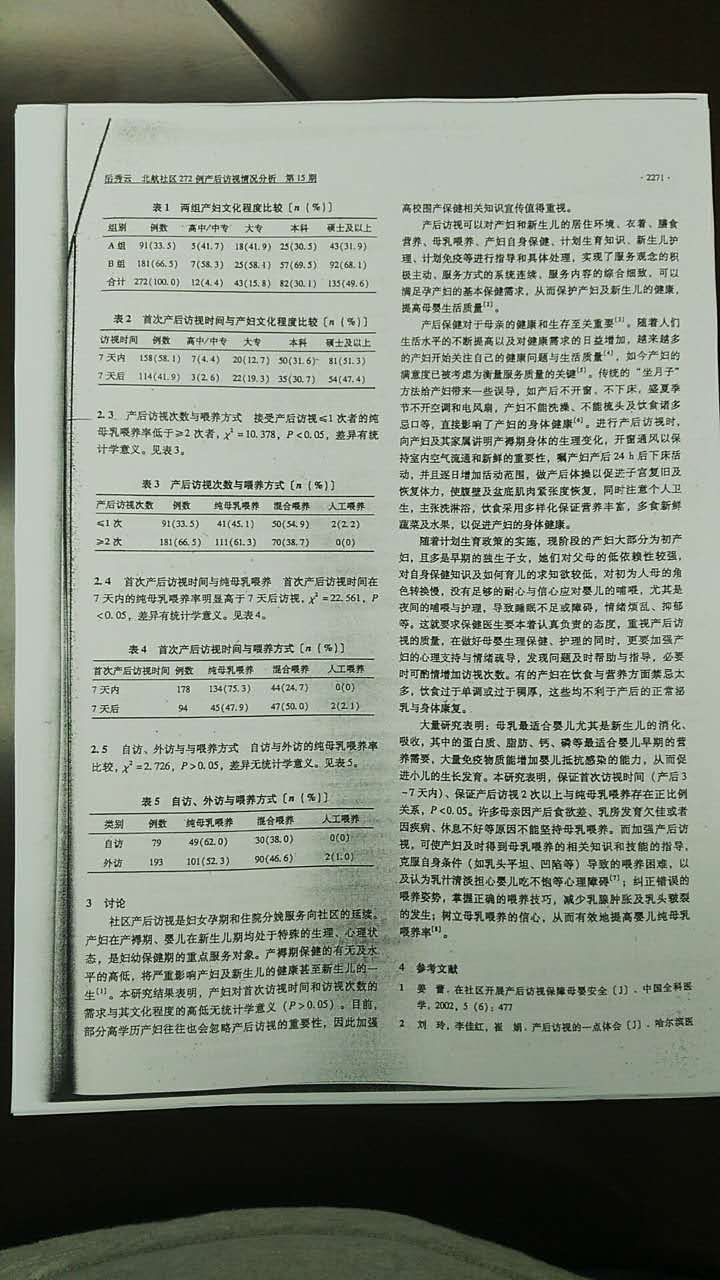 岳秀云 北航社区272例产后访视情况分析 第15期
·2271·
表1 两组产妇文化程度比较〔n (%)〕
组别 例数 高中/中专 大专 本科 硕士及以上
A组 91(33.5) 5(41.7) 18(41.9) 25(30.5) 43(31.9)
B组 181(66.5) 7(58.3) 25(58.1) 57(69.5) 92(68.1)
合计 272(100.0) 12(4.4) 43(15.8) 82(30.1) 135(49.6)
表2 首次产后访视时间与产妇文化程度比较〔n (%)〕
访视时间 例数 高中/中专 大专 本科 硕士及以上
7天内 158(58.1) 7(4.4) 20(12.7) 50(31.6) 81(51.3)
7天后 114(41.9) 3(2.6) 22(19.3) 35(30.7) 54(47.4)
2.3 产后访视次数与喂养方式 接受产后访视≤1次者的纯
母乳喂养率低于≥2次者，χ²=10.378，P<0.05，差异有统
计学意义。见表3。
表3 产后访视次数与喂养方式〔n (%)〕
产后访视次数 例数 纯母乳喂养 混合喂养 人工喂养
≤1次 91(33.5) 41(45.1) 50(54.9) 2(2.2)
≥2次 181(66.5) 111(61.3) 70(38.7) 0(0)
2.4 首次产后访视时间与纯母乳喂养 首次产后访视时间在
7天内的纯母乳喂养率明显高于7天后访视，χ²=22.561，P
<0.05，差异有统计学意义。见表4。
表4 首次产后访视时间与喂养方式〔n (%)〕
首次产后访视时间 例数 纯母乳喂养 混合喂养 人工喂养
7天内 178 134(75.3) 44(24.7) 0(0)
7天后 94 45(47.9) 47(50.0) 2(2.1)
2.5 自访、外访与与喂养方式 自访与外访的纯母乳喂养率
比较，χ²=2.726，P>0.05，差异无统计学意义。见表5。
表5 自访、外访与喂养方式〔n (%)〕
类别 例数 纯母乳喂养 混合喂养 人工喂养
自访 79 49(62.0) 30(38.0) 0(0)
外访 193 101(52.3) 90(46.6) 2(1.0)
3 讨论
社区产后访视是妇女孕期和住院分娩服务向社区的延续。
产妇在产褥期、婴儿在新生儿期均处于特殊的生理、心理状
态，是妇幼保健期的重点服务对象。产褥期保健的有无及水
平的高低，将严重影响产妇及新生儿的健康甚至新生儿的一
生[1]。本研究结果表明，产妇对首次访视时间和访视次数的
需求与其文化程度的高低无统计学意义（P>0.05）。目前，
部分高学历产妇往往也会忽略产后访视的重要性，因此加强
高校围产保健相关知识宣传值得重视。
产后访视可以对产妇和新生儿的居住环境、衣着、膳食
营养、母乳喂养、产妇自身保健、计划生育知识、新生儿护
理、计划免疫等进行指导和具体处理，实现了服务观念的积
极主动、服务方式的系统连续、服务内容的综合细致，可以
满足孕产妇的基本保健需求，从而保护产妇及新生儿的健康，
提高母婴生活质量[2]。
产后保健对于母亲的健康和生存至关重要[3]。随着人们
生活水平的不断提高以及对健康需求的日益增加，越来越多
的产妇开始关注自己的健康问题与生活质量[4]，如今产妇的
满意度已被考虑为衡量服务质量的关键[5]。传统的“坐月子”
方法给产妇带来一些误导，如产后不开窗，不下床，盛夏季
节不开空调和电风扇，产妇不能洗澡、不能梳头及饮食诸多
忌口等，直接影响了产妇的身体健康[6]。进行产后访视时，
向产妇及其家属讲明产褥期身体的生理变化，开窗通风以保
持室内空气流通和新鲜的重要性，嘱产妇产后24 h后下床活
动，并且逐日增加活动范围，做产后体操以促进子宫复旧及
恢复体力，使腹壁及盆底肌肉紧张度恢复，同时注意个人卫
生，主张洗淋浴，饮食采用多样化保证营养丰富，多食新鲜
蔬菜及水果，以促进产妇的身体健康。
随着计划生育政策的实施，现阶段的产妇大部分为初产
妇，且多是早期的独生子女，她们对父母的低依赖性较强，
对自身保健知识及如何育儿的求知欲较低，对初为人母的角
色转换慢，没有足够的耐心与信心应对婴儿的哺喂，尤其是
夜间的哺喂与护理，导致睡眠不足或障碍，情绪烦乱、抑郁
等。这就要求保健医生要本着认真负责的态度，重视产后访
视的质量，在做好母婴生理保健、护理的同时，更要加强产
妇的心理支持与情绪疏导，发现问题及时帮助与指导，必要
时可酌情增加访视次数。有的产妇在饮食与营养方面禁忌太
多，饮食过于单调或过于稠厚，这些均不利于产后的正常泌
乳与身体康复。
大量研究表明：母乳最适合婴儿尤其是新生儿的消化、
吸收，其中的蛋白质、脂肪、钙、磷等最适合婴儿早期的营
养需要，大量免疫物质能增加婴儿抵抗感染的能力，从而促
进小儿的生长发育。本研究表明，保证首次访视时间（产后3
~7天内）、保证产后访视2次以上与纯母乳喂养存在正比例
关系，P<0.05。许多母亲因产后食欲差、乳房发育欠佳或者
因疾病、休息不好等原因不能坚持母乳喂养。而加强产后访
视，可使产妇及时得到母乳喂养的相关知识和技能的指导，
克服自身条件（如乳头平坦、凹陷等）导致的喂养困难，以
及认为乳汁清淡担心婴儿吃不饱等心理障碍[7]；纠正错误的
喂养姿势，掌握正确的喂养技巧，减少乳腺肿胀及乳头皲裂
的发生；树立母乳喂养的信心，从而有效地提高婴儿纯母乳
喂养率[8]。
4 参考文献
1 姜 蕾．在社区开展产后访视保障母婴安全〔J〕．中国全科医
学，2002，5（6）：477
2 刘 玲，李佳红，崔 娟．产后访视的一点体会〔J〕．哈尔滨医